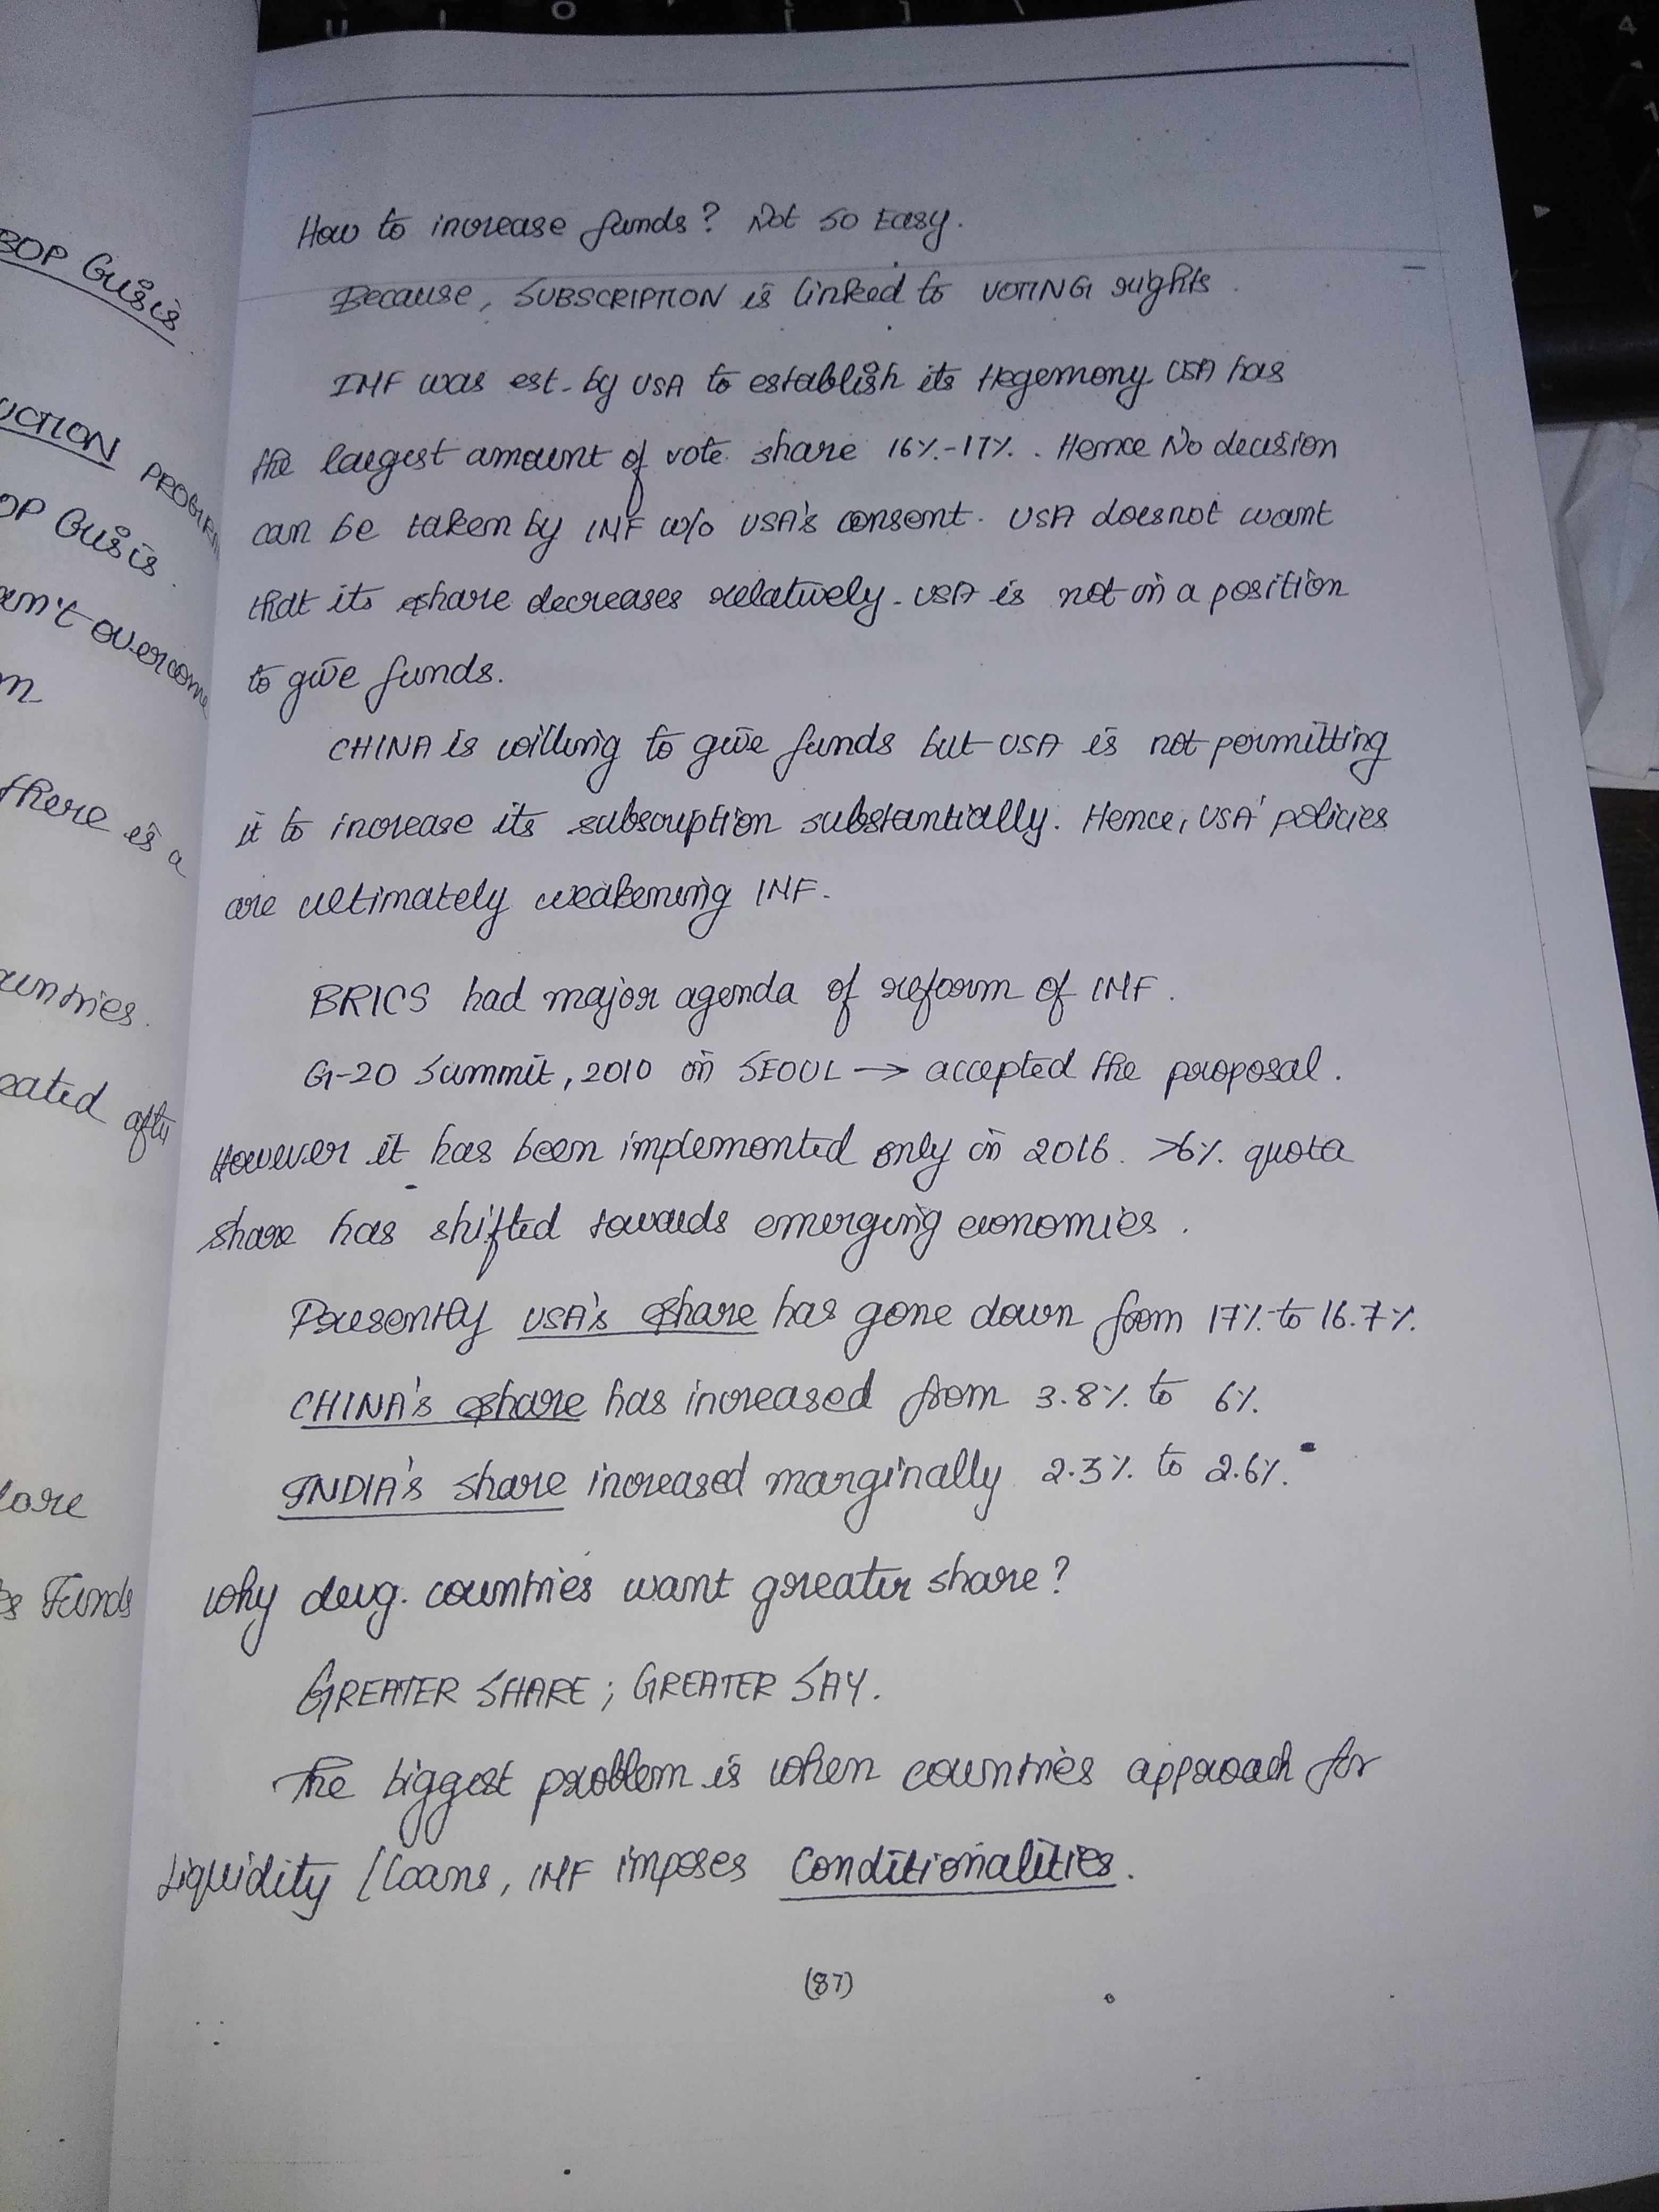 How to increase funds? Not so Easy.
Because, SUBSCRIPTION is linked to VOTING rights.
IMF was est. by USA to establish its Hegemony. USA has
the largest amount of vote share 16%-17%. Hence No decision
can be taken by IMF w/o USA's consent. USA does not want
that its share decreases relatively. USA is not in a position
to give funds.
CHINA is willing to give funds but USA is not permitting
it to increase its subscription substantially. Hence, USA' policies
are ultimately weakening IMF.
BRICS had major agenda of reform of IMF.
G-20 Summit, 2010 in SEOUL → accepted the proposal.
However it has been implemented only in 2016. >6% quota
share has shifted towards emerging economies.
Presently USA's share has gone down from 17% to 16.7%.
CHINA's share has increased from 3.8% to 6%.
INDIA's share increased marginally 2.3% to 2.6%.
Why devg. countries want greater share?
GREATER SHARE; GREATER SAY.
The biggest problem is when countries approach for
Liquidity / Loans, IMF imposes Conditionalities.
(87)
BOP Crisis
UCTION PROGRAM
OP Crisis.
an't overcome
m
there is a
untries.
eated after
lare
s Funds